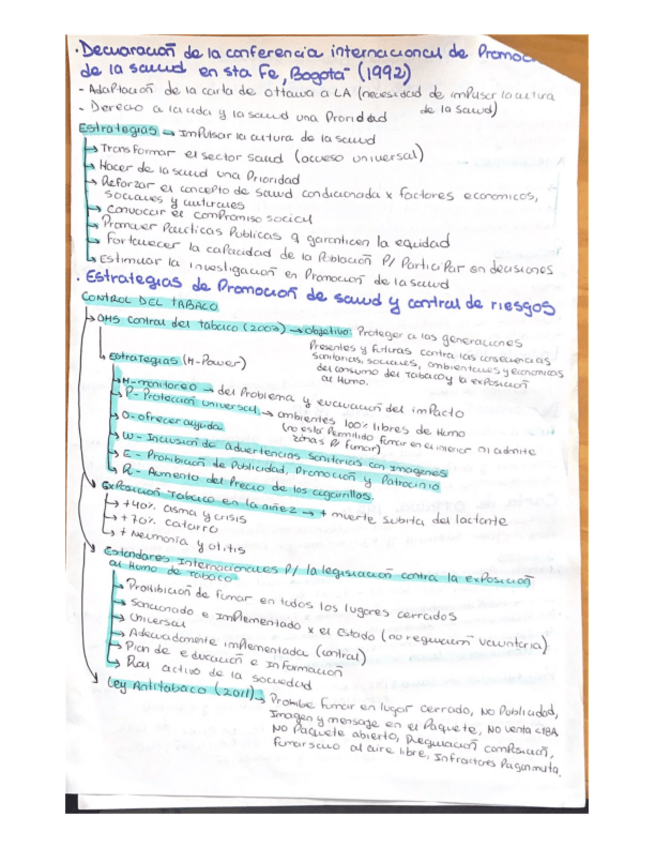 · Declaración de la conferencia internacional de Promoc
de la salud en sta Fe, Bogotá (1992)
- Adaptación de la carta de ottawa a LA (necesidad de impulsar la cultura
de la salud)
- Derecho a la vida y la salud una Prioridad
Estrategias → Impulsar la cultura de la salud
→ Transformar el sector salud (acceso universal)
→ Hacer de la salud una Prioridad
→ Reforzar el concepto de salud condicionada x factores economicos,
sociales y culturales
→ Convocar el compromiso social
→ Promover Políticas Publicas q garanticen la equidad
→ Fortalecer la capacidad de la Población P/ Participar en decisiones
→ Estimular la investigación en Promoción de la salud
· Estrategias de Promoción de salud y control de riesgos
CONTROL DEL TABACO
→ OMS Control del tabaco (2003) → Objetivo: Proteger a las generaciones
Presentes y futuras contra las consecuencias
sanitarias, sociales, ambientales y economicas
del consumo del tabaco y la exposición
al Humo.
→ Estrategias (M-Power)
→ M- monitoreo → del Problema y evaluación del impacto
→ P- Protección universal → ambientes 100% libres de Humo
(no está Permitido fumar en el interior ni admite
zonas P/ fumar)
→ O- ofrecer ayuda
→ W- Inclusión de advertencias sanitarias con imagenes
→ E- Prohibición de Publicidad, Promoción y Patrocinio
→ R- Aumento del Precio de los cigarrillos.
→ Exposición Tabaco en la niñez → + muerte subita del lactante
→ +40% asma y crisis
→ +70% catarro
→ + Neumonía y otitis
→ Estandares Internacionales P/ la legislación contra la exposición
al Humo de Tabaco
→ Prohibición de fumar en todos los lugares cerrados
→ Sancionado e Implementado x el Estado (no regulación voluntaria)
→ Universal
→ Adecuadamente implementada (control)
→ Plan de educación e Información
→ Rol activo de la sociedad
→ Ley Antitabaco (2011) → Prohibe fumar en lugar cerrado, No Publicidad,
Imagen y mensaje en el Paquete, No venta <18A
No Paquete abierto, Regulación composición,
fumar solo al aire libre, Infractores Pagan multa.